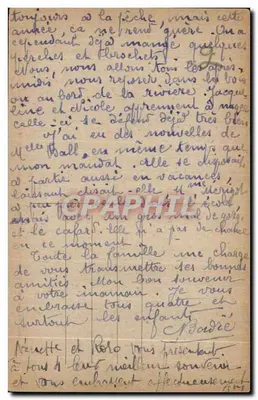 toujours à la pêche, mais cette
année, ça ne rend guère. On a
cependant déjà mangé quelques
perches et brochets
Nous, nous allons tous les après
midi, nous reposer dans les bois
ou au bord de la rivière. Jacque
line et Nicole apprennent à nager
celle-ci se défend déjà très bien
J'ai eu des nouvelles de
Melle Ball, en même temps que
mon mandat. Elle se disposait
à partir aussi en vacances,
laissant disait-elle Mme
et le cafard. Elle n'a pas de chance
en ce moment
Toute la famille me charge
de vous transmettre ses bonnes
amitiés. Mon bon souvenir
à votre maman. Je vous
embrasse tous quatre et
surtout les enfants.
Nénette et Roro vous présentent
à tous 4 leur meilleur souvenir
et vous embrassent affectueusement
CPAPHIL